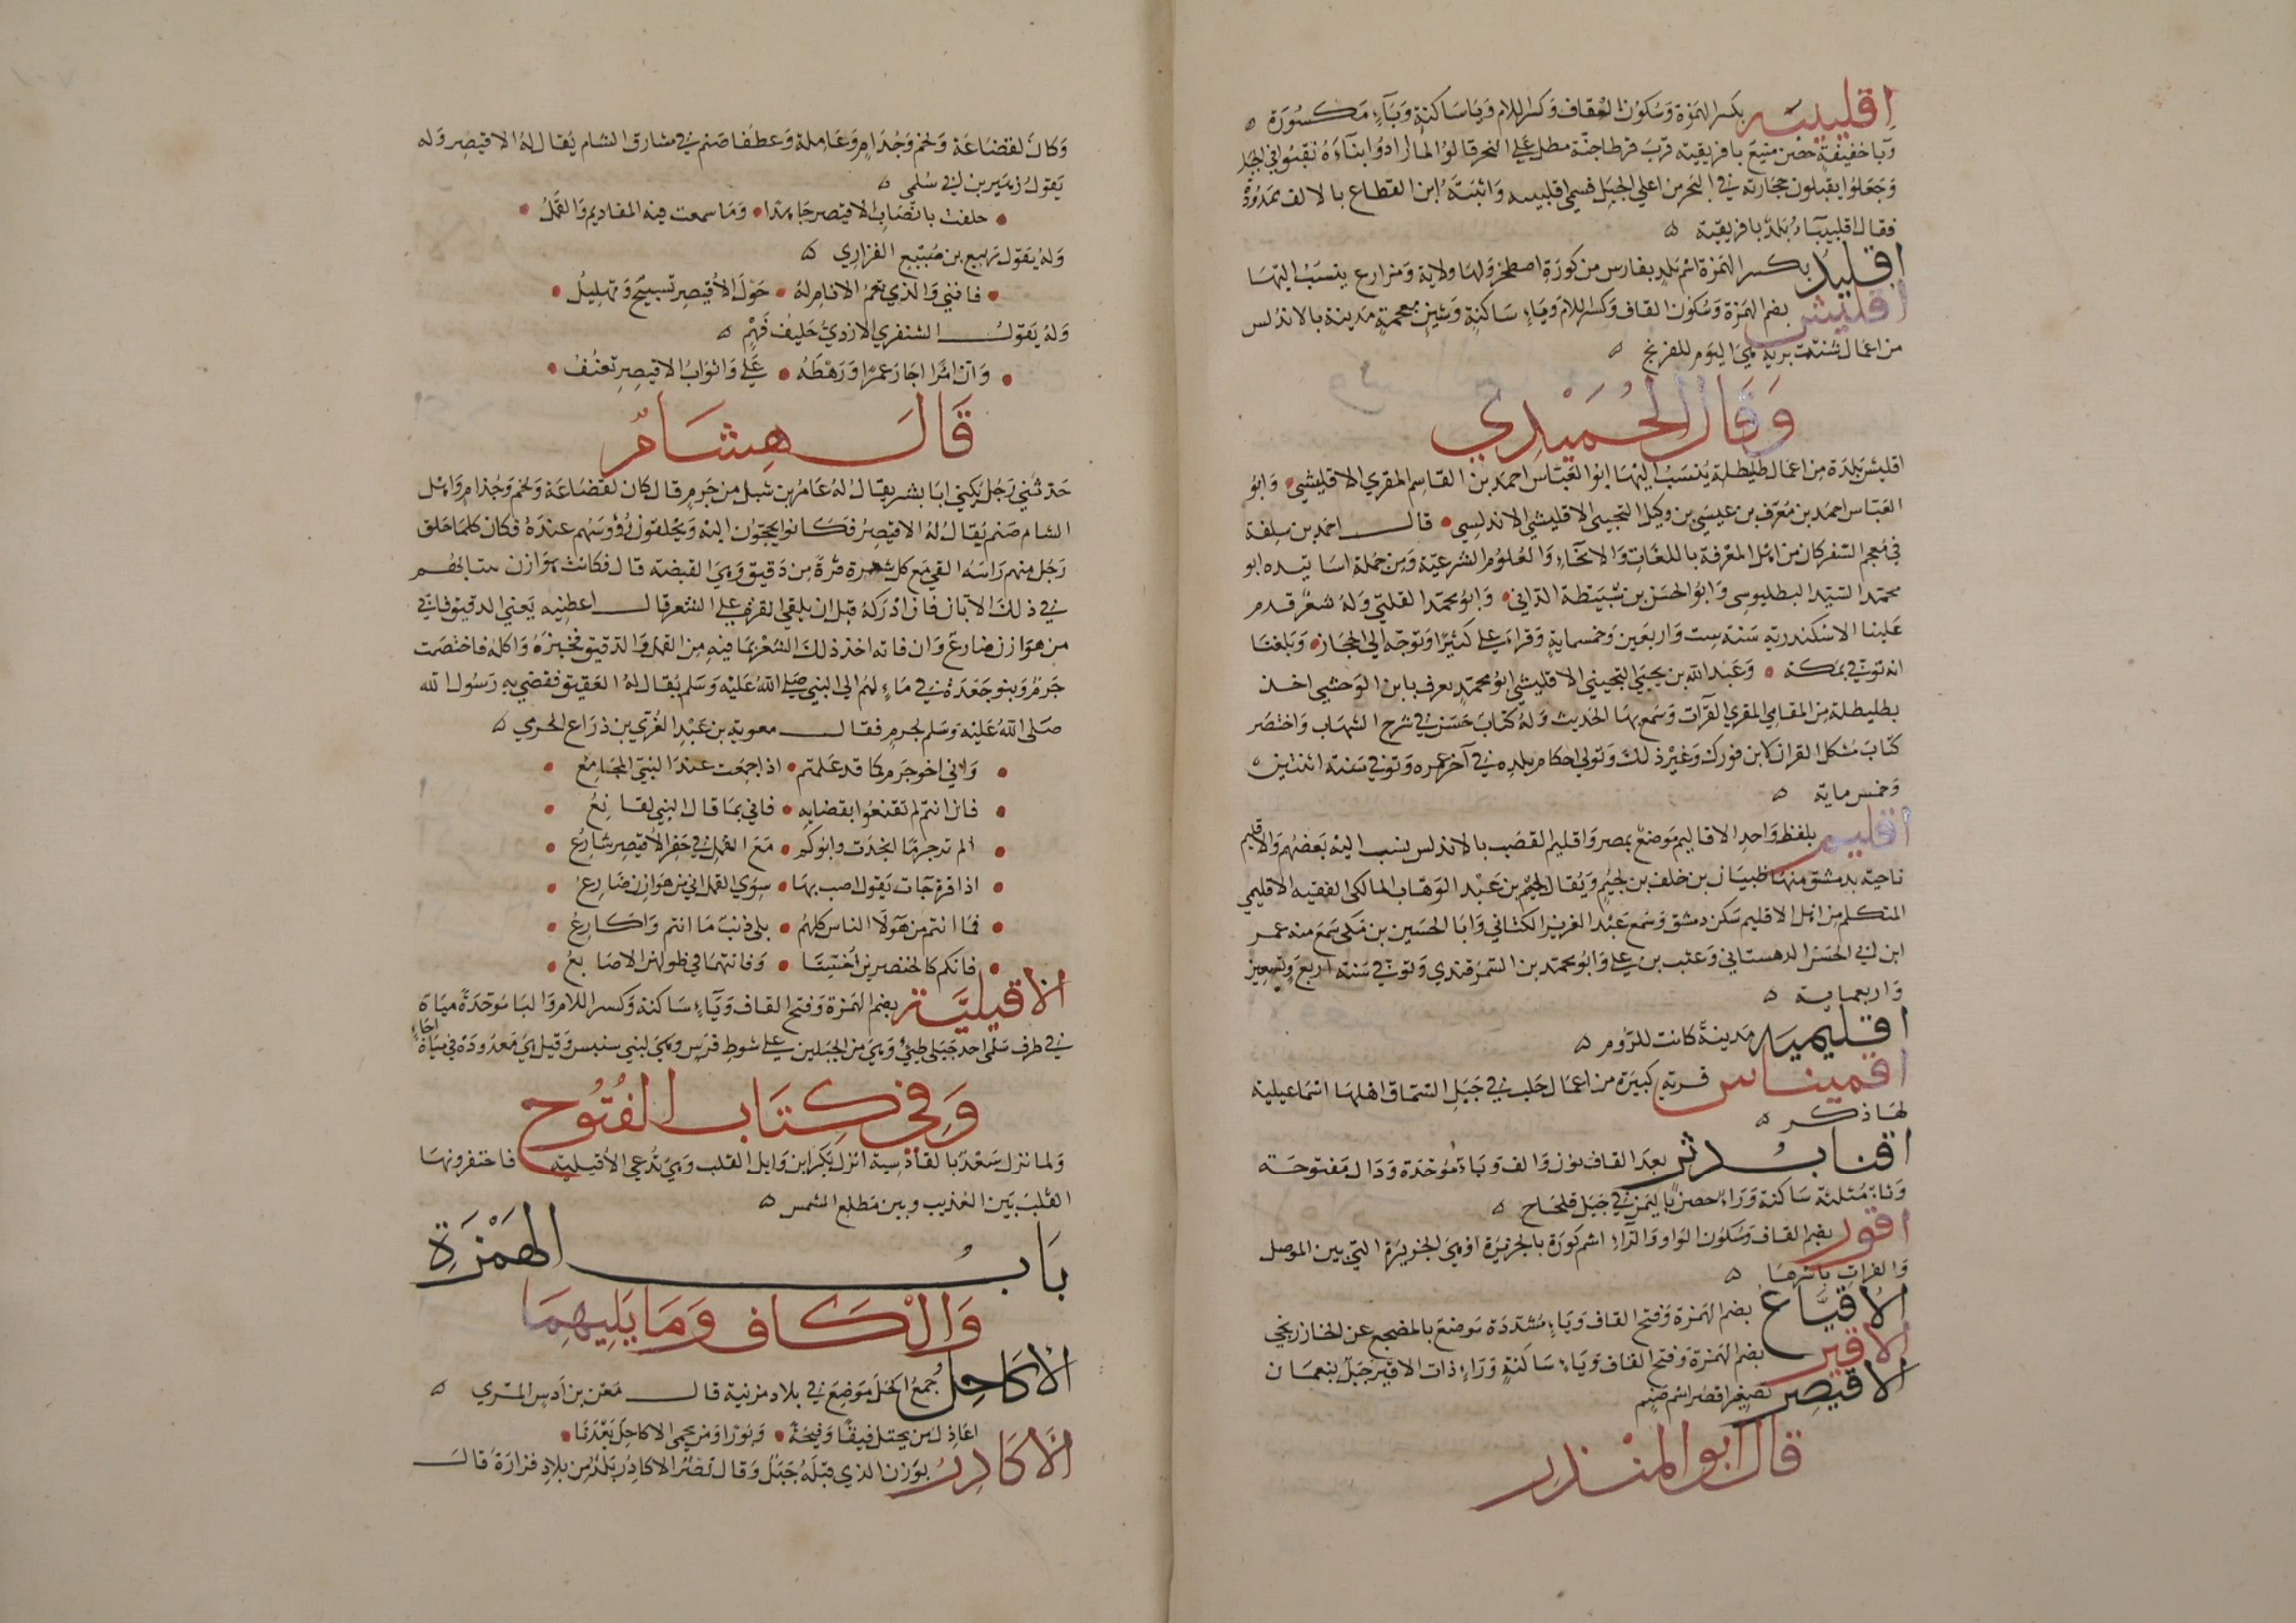 اقليبيه بكسر الهمزة وسكون القاف وكسر اللام وياساكنة وبآء مكسورة
ويا خفيفة حصن منيع بافريقية قرب قرطاجنة مطل على البحر قالوا لما ارادوا ابناءه نقبوا في الجبل
وجعلوا يقبلون حجارته في البحر من اعلى الجبل فسمي اقليبيه واثبته ابن القطاع بالالف ممدودة
فقال اقليبيآء بلد بافريقية
اقليد بكسر الهمزة اسم بلد بفارس من كورة اصطخر ولها ولاية ومزارع ينسب اليها
اقليش بضم الهمزة وسكون القاف وكسر اللام وياء ساكنة وشين معجمة مدينة بالاندلس
من اعمال شنت برية وهي اليوم للفرنج
وقال الحميدي
اقليش بلدة من اعمال طليطلة ينسب اليها ابو العباس احمد بن القاسم المقري الاقليشي وابو
العباس احمد بن معرف بن عيسى بن وكيل التجيبي الاقليشي الاندلسي قال احمد بن سلفة
في معجم السفر كان من اهل المعرفة باللغات والانحاء والعلوم الشرعية ومن جملة اساتيده ابو
محمد السيد البطليوسى وابو الحسن بن سبيطة الداني وابو محمد القلتي وله شعر قدم
علينا الاسكندرية سنة ست واربعين وخمسماية وقرا علي كثيرا وتوجه الى الحجاز وبلغنا
انه توفي بمكة وعبد الله بن يحيى التجيبي الاقليشي ابو محمد يعرف بابن الوحشي اخذ
بطليطلة من المقامي المقري القرآت وسمع بها الحديث وله كتاب حسن في شرح الشهاب واختصر
كتاب مشكل القران لابن فورك وغير ذلك وتولى احكام بلده في آخر عمره وتوفي سنة اثنتين
وخمس ماية
اقليم بلفظ واحد الاقاليم موضع بمصر واقليم القصب بالاندلس ينسب اليه بعضهم والاقليم
ناحية بدمشق منها ظبيان بن خلف بن لجيم ويقال لجيم بن عبد الوهاب المالكي الفقيه الاقليمي
المتكلم من اهل الاقليم سكن دمشق وسمع عبد العزيز الكتاني وابا الحسين بن مكي سمع منه عمر
ابن ابي الحسن الدهستاني وغيب بن علي وابو محمد بن السمرقندي وتوفي سنة اربع وتسعين
واربعماية
اقليميه مدينة كانت للروم
اقميناس قرية كبيرة من اعمال حلب في جبل السماق اهلها اسماعيلية
لها ذكر
اقنابدثر بعد القاف نون والف وباء موحدة ودال مفتوحة
وثاء مثلثة ساكنة وراء حصن باليمن في جبل قلحاح
اقور بضم القاف وسكون الواو والراء اسم كورة بالجزيرة او هي الجزيرة التي بين الموصل
والفرات باسرها
الاقياع بضم الهمزة وفتح القاف وياء مشددة موضع بالمضجع عن الخارزنجي
الاقير بضم الهمزة وفتح القاف وياء ساكنة وراء ذات الاقير جبل بنعمان
الاقيصر تصغير اقصر اسم صنم
قال ابو المنذر
وكان لقضاعة ولخم وجذام وعاملة وغطفا صنم في مشارق الشام يقال له الاقيصر وله
يقول زهير بن ابي سلمى
حلفت بانصاب الاقيصر جاهدا وما سحقت فيه المقاديم والقمل
وله يقول ربيع بن ضبيع الفزاري
فانني والذي نغم الانام له حول الاقيصر تسبيح وتهليل
وله يقول الشنفري الازدي حليف فهم
وان امرا اجار عمرا ورهطه علي واثواب الاقيصر تعنف
قال هشام
حدثني رجل يكنى ابا بشر يقال له عامر بن شبل من جرم قال كان لقضاعة ولخم وجذام واهل
الشام صنم يقال له الاقيصر فكانوا يحجون اليه ويحلقون رؤوسهم عنده فكان كلما حلق
رجل منهم راسه القى مع كل شعرة قرة من دقيق وهي القبضة قال فكانت هوازن تنتابهم
في ذلك الابان فان ادركه قبل ان يلقي القرة على الشعر قال اعطنيه يعني الدقيق فاني
من هوازن ضارع وان فاته اخذ ذلك الشعر بما فيه من القمل والدقيق فخبزه واكله فاختصمت
جرم وبنو جعدة في ماء لهم الى النبي صلى الله عليه وسلم يقال له العقيق فقضى به رسول الله
صلى الله عليه وسلم لجرم فقال معوية بن عبد العزي بن ذراع الجرمي
واني اخو جرم كما قد علمتم اذا جمعت عند النبي المجامع
فان انتم لم تقنعوا بقضايه فاني بما قال النبي لقانع
الم تر جرما انجدت وابوكم مع القمل في حفر الاقيصر شارع
اذا قرة جآت يقول اصب بها سوى القمل اني من هوازن ضارع
فما انتم من هولا الناس كلهم بلى ذنب ما انتم واكارع
فانكم كالخنصرين اخستا وفاتتهما في طولهن الاصابع
الاقيلية بضم الهمزة وفتح القاف وياء ساكنة وكسر اللام والبا موحدة مياة
في طرف سلمى احد جبلي طيئ وهي من الجبلين على شوط فرس وهي لبني سنبس وقيل هي معدودة في مياة اجاء
وفي كتاب الفتوح
ولما نزل سعد بالقادسية انزل بكر ابن وايل القلب وهي تدعى الاقيلية فاحتفروا بها
القلب بين العذيب وبين مطلع الشمس
باب الهمزة
والكاف وما يليهما
الاكاحل جمع اكحل موضع في بلاد مزينة قال معن بن اوس المزني
اعاذل من يحتل فيفا وفيحة وثورا ومن يحمي الاكاحل بعدنا
الاكادر بوزن الذي قبله جبل وقال نصر الاكادر بلد من بلاد فزارة قال